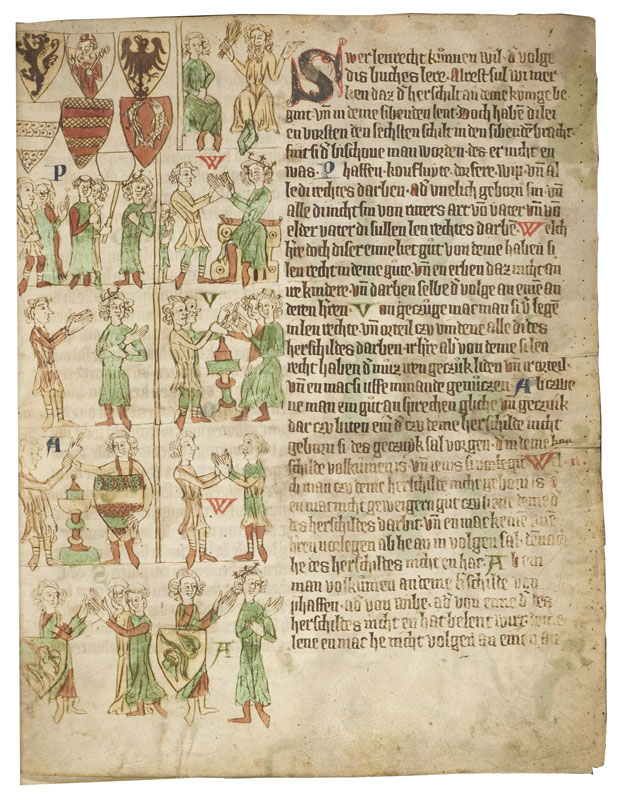 P
W
V
A
W
A
Swer lenrecht kůnnen wil · d volge
dis buches lere · Alrest sul wi mer
ken daz d herschilt an deme kunige be
gint vn in deme sibenden lent · Doch habē di lei
en vorsten den sechsten schilt in den sibendē bracht
sint si d bischoue man worden · des er nicht en
was · Phaffen · kouflute · dorfere · wip · vn al
le di rechtes darben · ad vnelich geborn sin · vn
alle di nicht sin von ritters art vō vater vn vō
elder vater di sullen len rechtes darbē · Welch
hre doch diser eime liet gut von deme habē si
len recht in deme gute · vn en erben daz nicht an
ire kindere · vn darben selbe d volge an einē an
deren hren · Von geczuge mac man si v legē
in len rechte vn orteil czu vindene alle di des
herschildes darben · ir hre ab von deme si len
recht haben d muz wen geczuk liden vn ir orteil ·
vn en mac si uffe nimande genuczen · Ab czwe
ne man ein gut an sprechen gliche vn geczuk
dar czu biten ein d czu deme herschilde nicht
geborn si des geczuk sal vorgen · d in deme her
schilde volkumen is vn ienis si vorlegit · Wel
ich man czu deme herschilde nicht geborn is
en mac nicht geweigern gut czu liene deme d
des herschildes darbit · vn en mac keine
hren vorlegen ab he an in volgen sal · dennoch
he des herschildes nicht en hat · Ab ein
man volkumen an deme h schilde von
phaffen · ad von wibe · ad von eime d des
herschildes nicht en hat belent wirt
lene en mac he nicht volgen an einen an